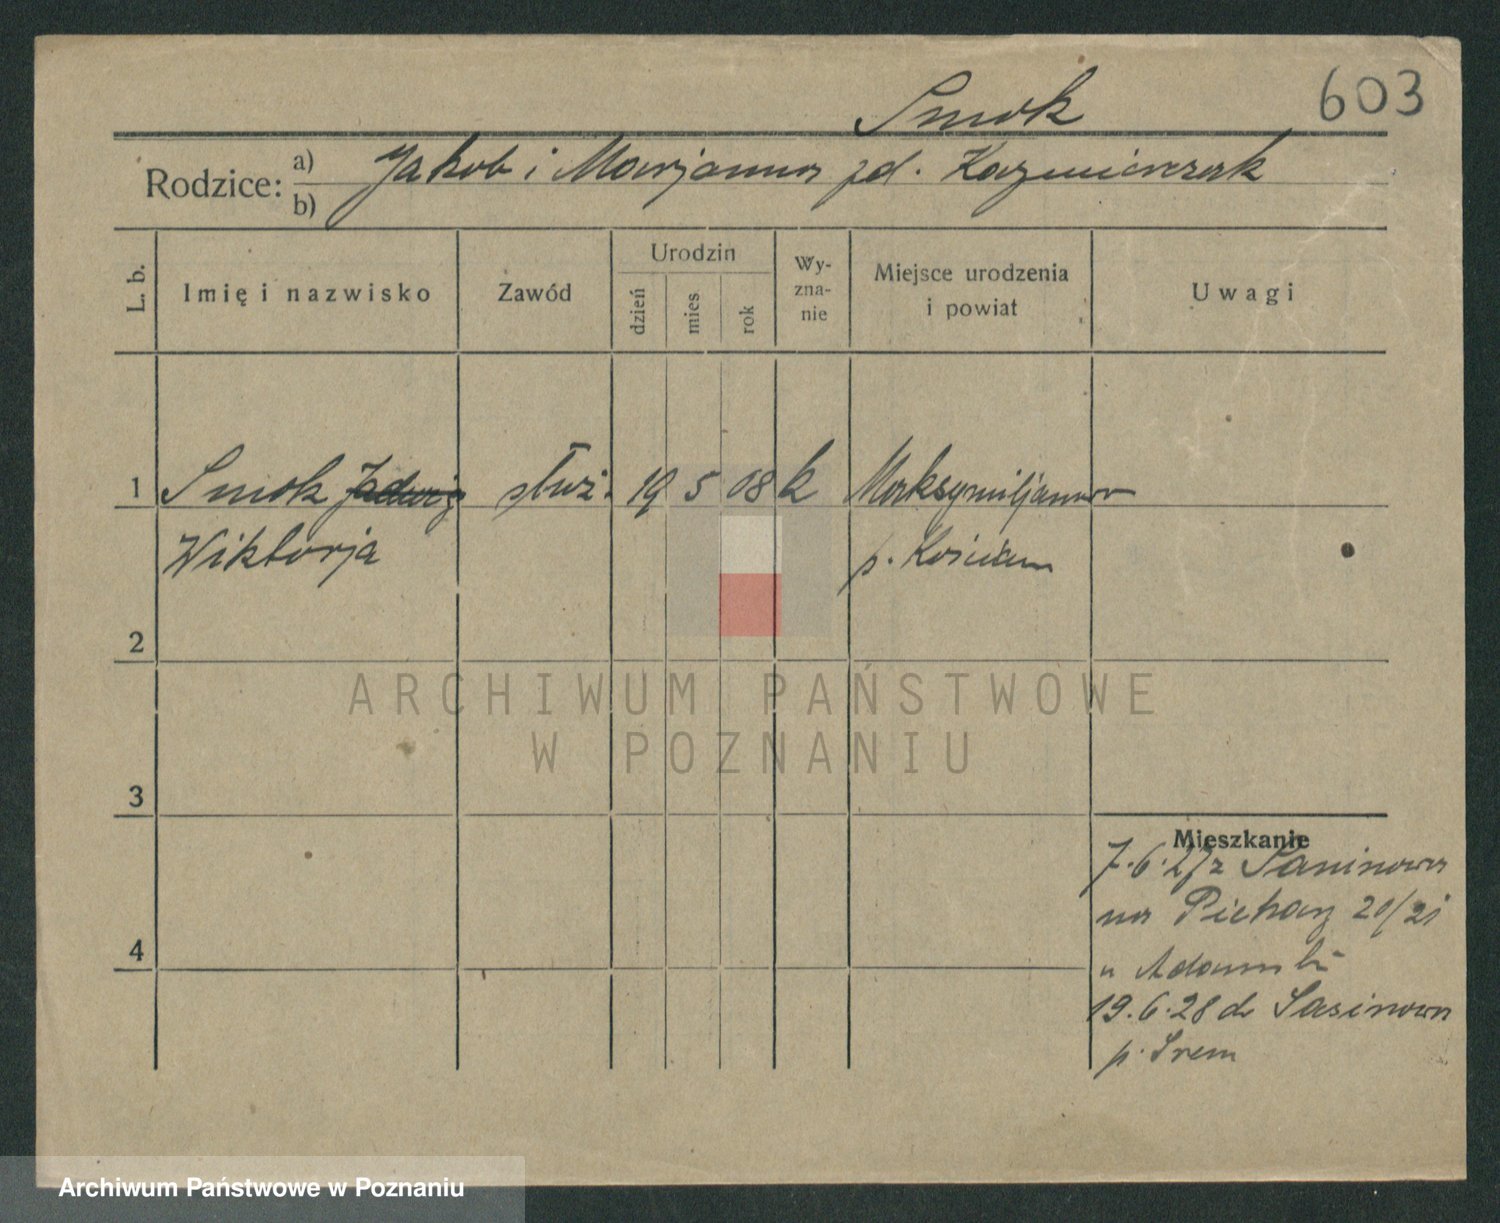 Smok 603
Rodzice: a) Jakob i Marjanna zd. Kazmierczak
b)
L. b. Imię i nazwisko Zawód Urodzin dzień mies rok Wyznanie Miejsce urodzenia i powiat Uwagi
1 Smok Jadwig służ. 19 5 08 k Maksymiljanowo
Wiktorja p. Kościan
2
ARCHIWUM PAŃSTWOWE
W POZNANIU
3
Mieszkanie
7.6.27 z Saninowa
na Piekary 20/21
u Adamski
4
19.6.28 do Sasinowa
p. Śrem
Archiwum Państwowe w Poznaniu